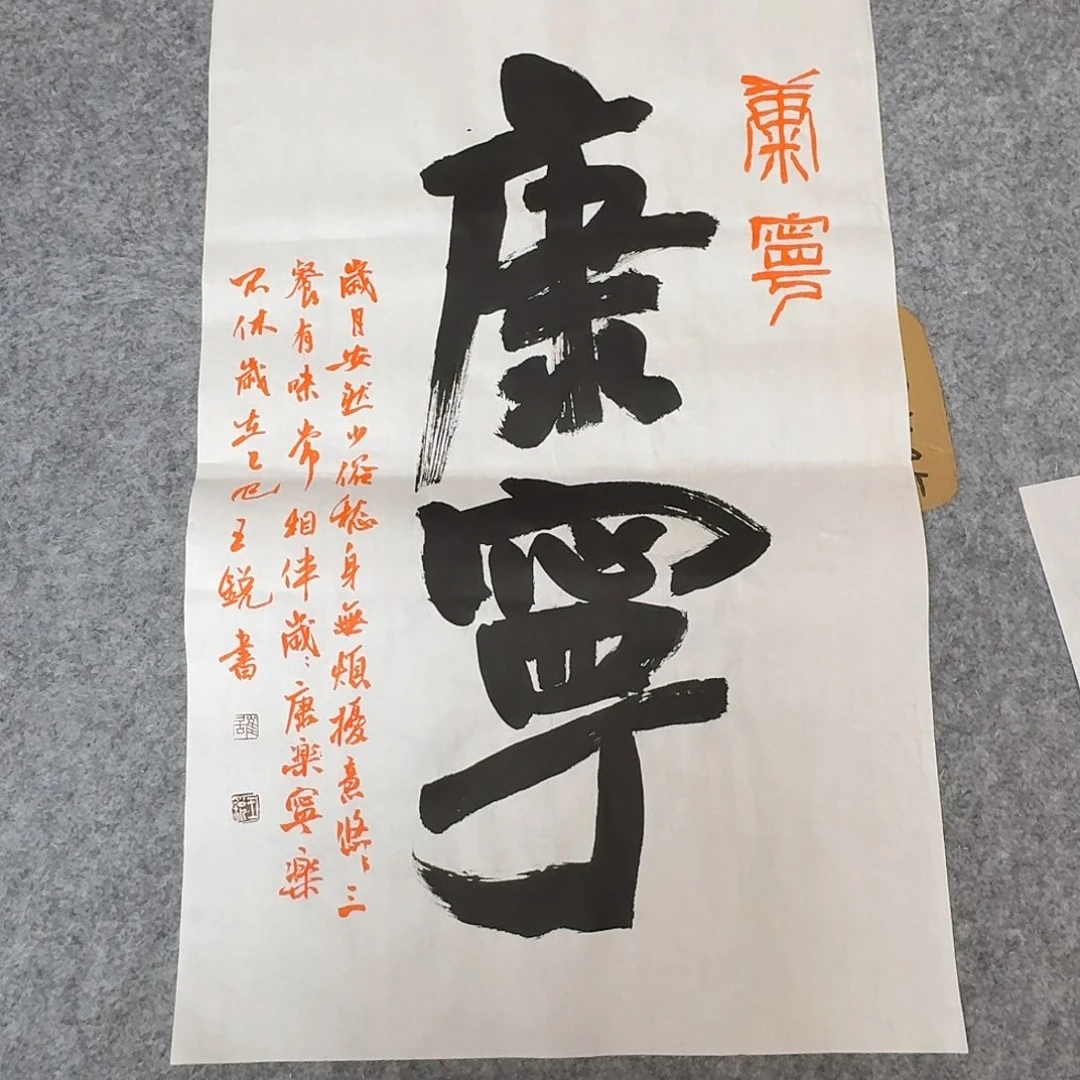 康寧
康寧
歲月安然少俗愁身無煩擾意悠〻三
餐有味常相伴歲〻康楽寧楽
不休歲在乙巳王銳書
王銳